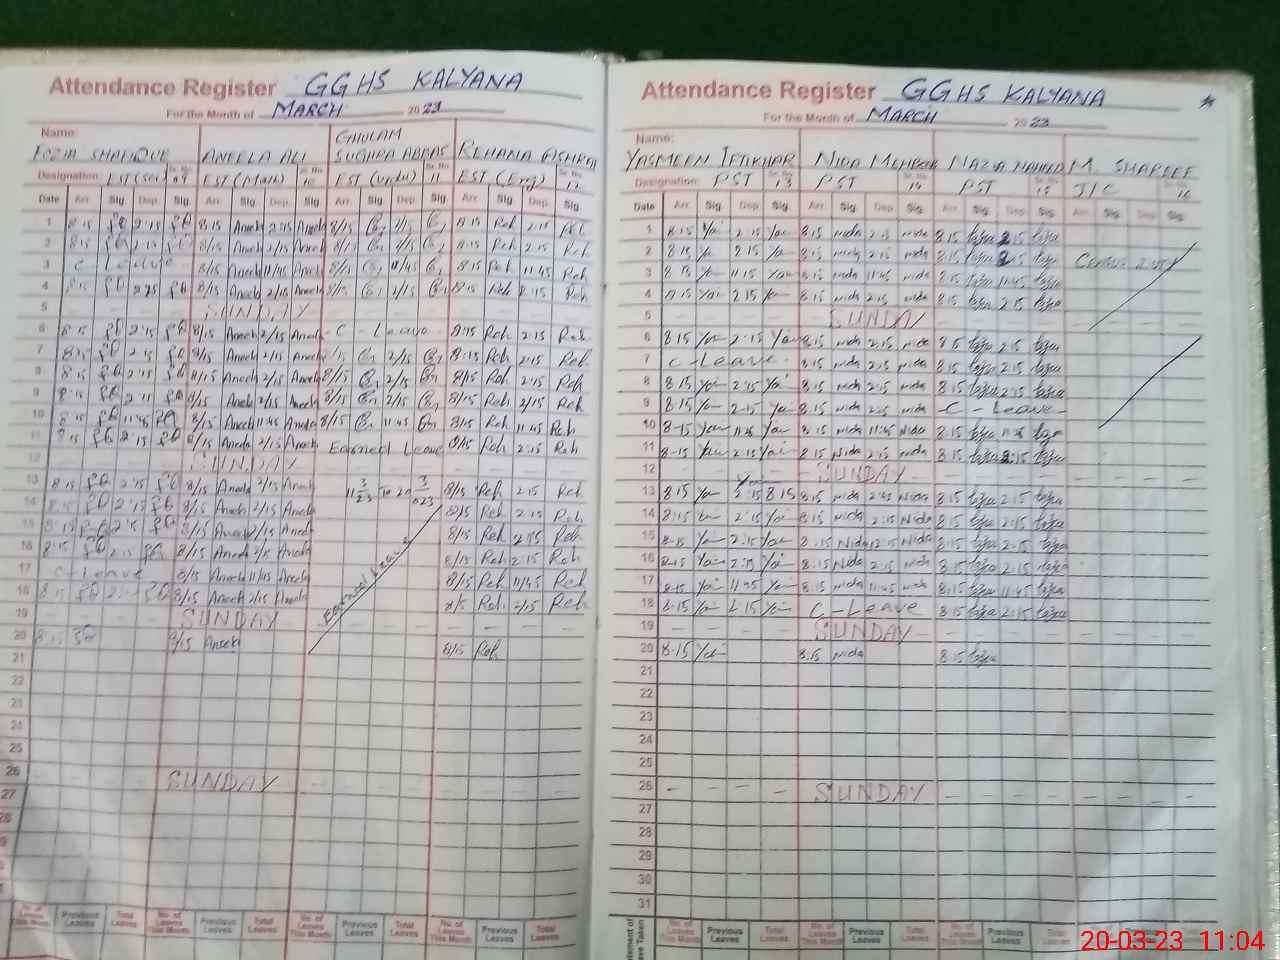 Attendance Register GGHS KALYANA
For the Month of MARCH 2023
Name:
FOZIA SHAFIQUE ANEELA ALI GHULAM SUGHRA ABBAS REHANA ASHRAF
Designation: EST (Sci) Sr. No. 09 EST (Math) Sr. No. 10 EST (Urdu) Sr. No. 11 EST (Eng) Sr. No. 12
Date Arr. Sig. Dep. Sig. Arr. Sig. Dep. Sig. Arr. Sig. Dep. Sig. Arr. Sig. Dep. Sig.
1 8:15 2:15 8/15 Aneela 2:15 Aneela 8/15 2/15 8:15 Reh 2:15 Reh
2 8:15 2:15 8/15 Aneela 2/15 Aneela 8/15 2/15 8:15 Reh 2:15 Reh
3 C Leave 8/15 Aneela 11/45 Aneela 8/15 11/45 8:15 Reh 11:45 Reh
4 8:15 2:15 8/15 Aneela 2/15 Aneela 8/15 2/15 8:15 Reh 2:15 Reh
5 SUNDAY
6 8:15 2:15 8/15 Aneela 2/15 Aneela C - Leave 8:15 Reh 2:15 Reh
7 8:15 2:15 8/15 Aneela 2/15 Aneela 8/15 2/15 8:15 Reh 2:15 Reh
8 8:15 2:15 8/15 Aneela 2/15 Aneela 8/15 2/15 8/15 Reh 2:15 Reh
9 8:15 2:15 8/15 Aneela 2/15 Aneela 8/15 2/15 8/15 Reh 2/15 Reh
10 8:15 11:45 8/15 Aneela 11/45 Aneela 8/15 11:45 8/15 Reh 11:45 Reh
11 8:15 2:15 8/15 Aneela 2/15 Aneela Earned Leave 8/15 Reh 2:15 Reh
12 SUNDAY
13 8:15 2:15 8/15 Aneela 2/15 Aneela 8/15 Reh 2:15 Reh
14 8:15 2:15 8/15 Aneela 2/15 Aneela 8/15 Reh 2:15 Reh
15 8:15 2:15 8/15 Aneela 2/15 Aneela 8/15 Reh 2:15 Reh
16 8:15 2:15 8/15 Aneela 2/15 Aneela 8/15 Reh 2:15 Reh
17 C-Leave 8/15 Aneela 11/45 Aneela Earned Leave 8/15 Reh 11/45 Reh
18 8:15 8/15 Aneela 2/15 Aneela 8/15 Reh 2/15 Reh
19 SUNDAY
20 8:15 8/15 Aneela 8/15 Reh
21
22
23
24
25
26 SUNDAY
27
28
No. of Leaves This Month Previous Leaves Total Leaves No. of Leaves This Month Previous Leaves Total Leaves No. of Leaves This Month Previous Leaves Total Leaves No. of Leaves This Month Previous Leaves Total Leaves
Attendance Register GGHS KALYANA
For the Month of MARCH 2023
Name:
YASMEEN IFTIKHAR NIDA MEHBOOB NAZIA NAHEED M. SHAREEF
Designation: PST Sr. No. 13 PST Sr. No. 14 PST Sr. No. 15 I/C Sr. No. 16
Date Arr. Sig. Dep. Sig. Arr. Sig. Dep. Sig. Arr. Sig. Dep. Sig. Arr. Sig. Dep. Sig.
1 8:15 2:15 8:15 nida 2:15 nida 8:15 2:15
2 8:15 2:15 8:15 nida 2:15 nida 8:15 2:15
3 8:15 11:45 8:15 nida 11:45 nida 8:15 11:45
4 8:15 2:15 8:15 nida 2:15 nida 8:15 2:15
5 SUNDAY
6 8:15 2:15 8:15 nida 2:15 nida 8:15 2:15
7 C-Leave 8:15 nida 2:15 nida 8:15 2:15
8 8:15 2:15 8:15 nida 2:15 nida 8:15 2:15
9 8:15 2:15 8:15 nida 2:15 nida C - Leave
10 8:15 11:45 8:15 nida 11:45 Nida 8:15 11:45
11 8:15 2:15 8:15 Nida 2:15 nida 8:15 2:15
12 SUNDAY
13 8:15 2:15 8:15 8:15 nida 2:45 Nida 8:15 2:15
14 8:15 2:15 8:15 nida 2:15 Nida 8:15 2:15
15 8:15 2:15 8:15 Nida 2:15 Nida 8:15 2:15
16 8:15 2:15 8:15 Nida 2:15 nida 8:15 2:15
17 8:15 11:45 8:15 nida 11:45 nida 8:15 11:45
18 8:15 2:15 C-Leave 8:15 2:15
19 SUNDAY
20 8:15 8:15 nida 8:15
21
22
23
24
25
26 SUNDAY
27
28
29
30
31
No. of Leaves This Month Previous Leaves Total Leaves No. of Leaves This Month Previous Leaves Total Leaves No. of Leaves This Month Previous Leaves Total Leaves No. of Leaves This Month Previous Leaves Total Leaves
20-03-23 11:04